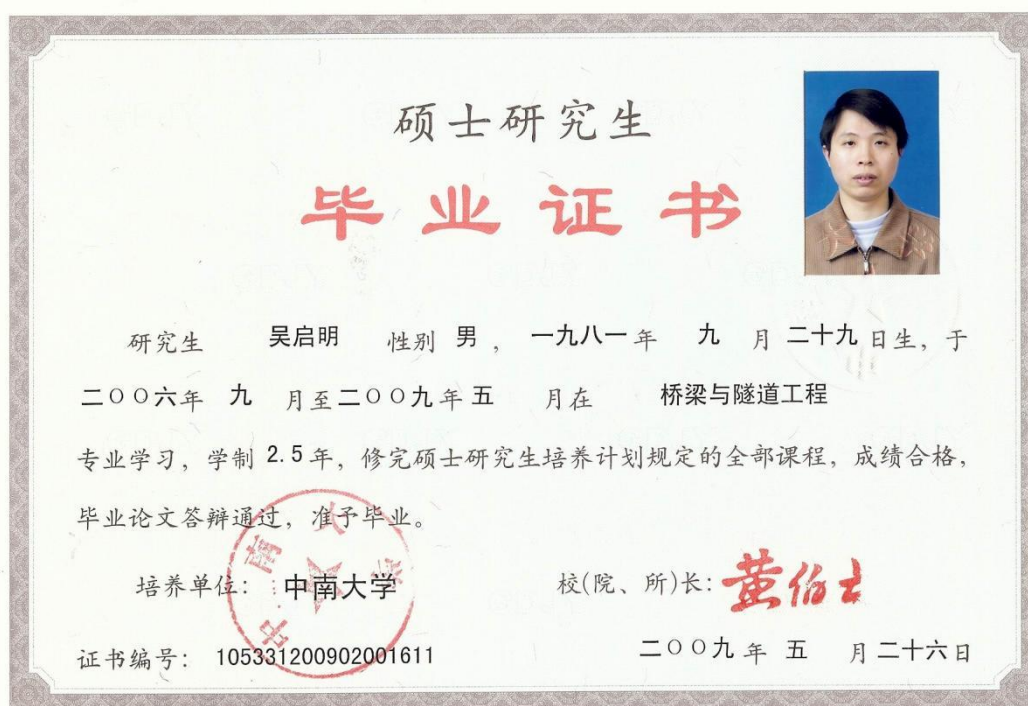 硕士研究生
毕业证书
研究生 吴启明 性别 男，一九八一年 九 月 二十九日生，于
二〇〇六年 九 月至二〇〇九年五 月在 桥梁与隧道工程
专业学习，学制 2.5年，修完硕士研究生培养计划规定的全部课程，成绩合格，
毕业论文答辩通过，准予毕业。
培养单位：中南大学 校(院、所)长：黄伯云
证书编号：105331200902001611 二〇〇九年 五 月二十六日
中南大学